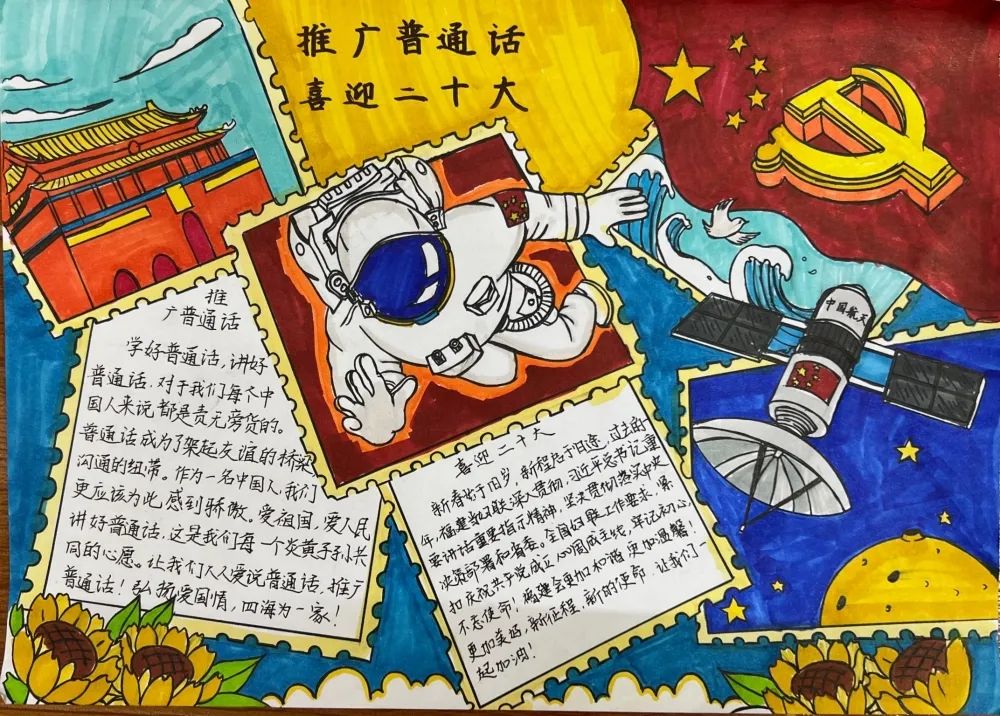 推广普通话
喜迎二十大
中国航天
推
广普通话
学好普通话，讲好
普通话，对于我们每个中
国人来说都是责无旁货的。
普通话成为了架起友谊的桥梁
沟通的纽带。作为一名中国人，我们
更应该为此感到骄傲。爱祖国，爱人民
讲好普通话，这是我们每一个炎黄子孙共
同的心愿。让我们人人爱说普通话，推广
普通话！弘扬爱国情，四海为一家！
喜迎二十大
新春出于旧岁，新程启于旧途，过去的
年，福建省妇联深入贯彻，习近平总书记重
要讲话重要指示精神，坚决贯彻落实中央
决策部署和省委。全国妇联工作要求，紧
扣庆祝共产党成立100周年主线，牢记初心
不忘使命！福建会更加和谐更加温馨
更加美好，新征程，新的使命，让我们一
起加油！